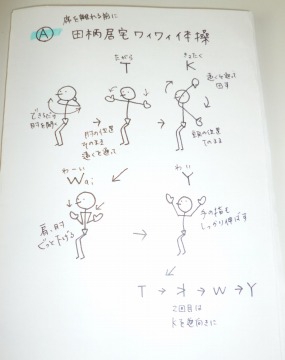 席を離れる前に
Ⓐ 田柄居宅ワイワイ体操
たがら
T
きょたく
K
できるだけ
肘を開く
肘の位置
そのまま
遠くを通って
遠くを通って
回す
肩の位置
そのまま
わーい
Wai
わい
Y
肩、肘
ぐっと下げる
手の指を
しっかり伸ばす
T → K → W → Y
2回目は
Kを逆向きに